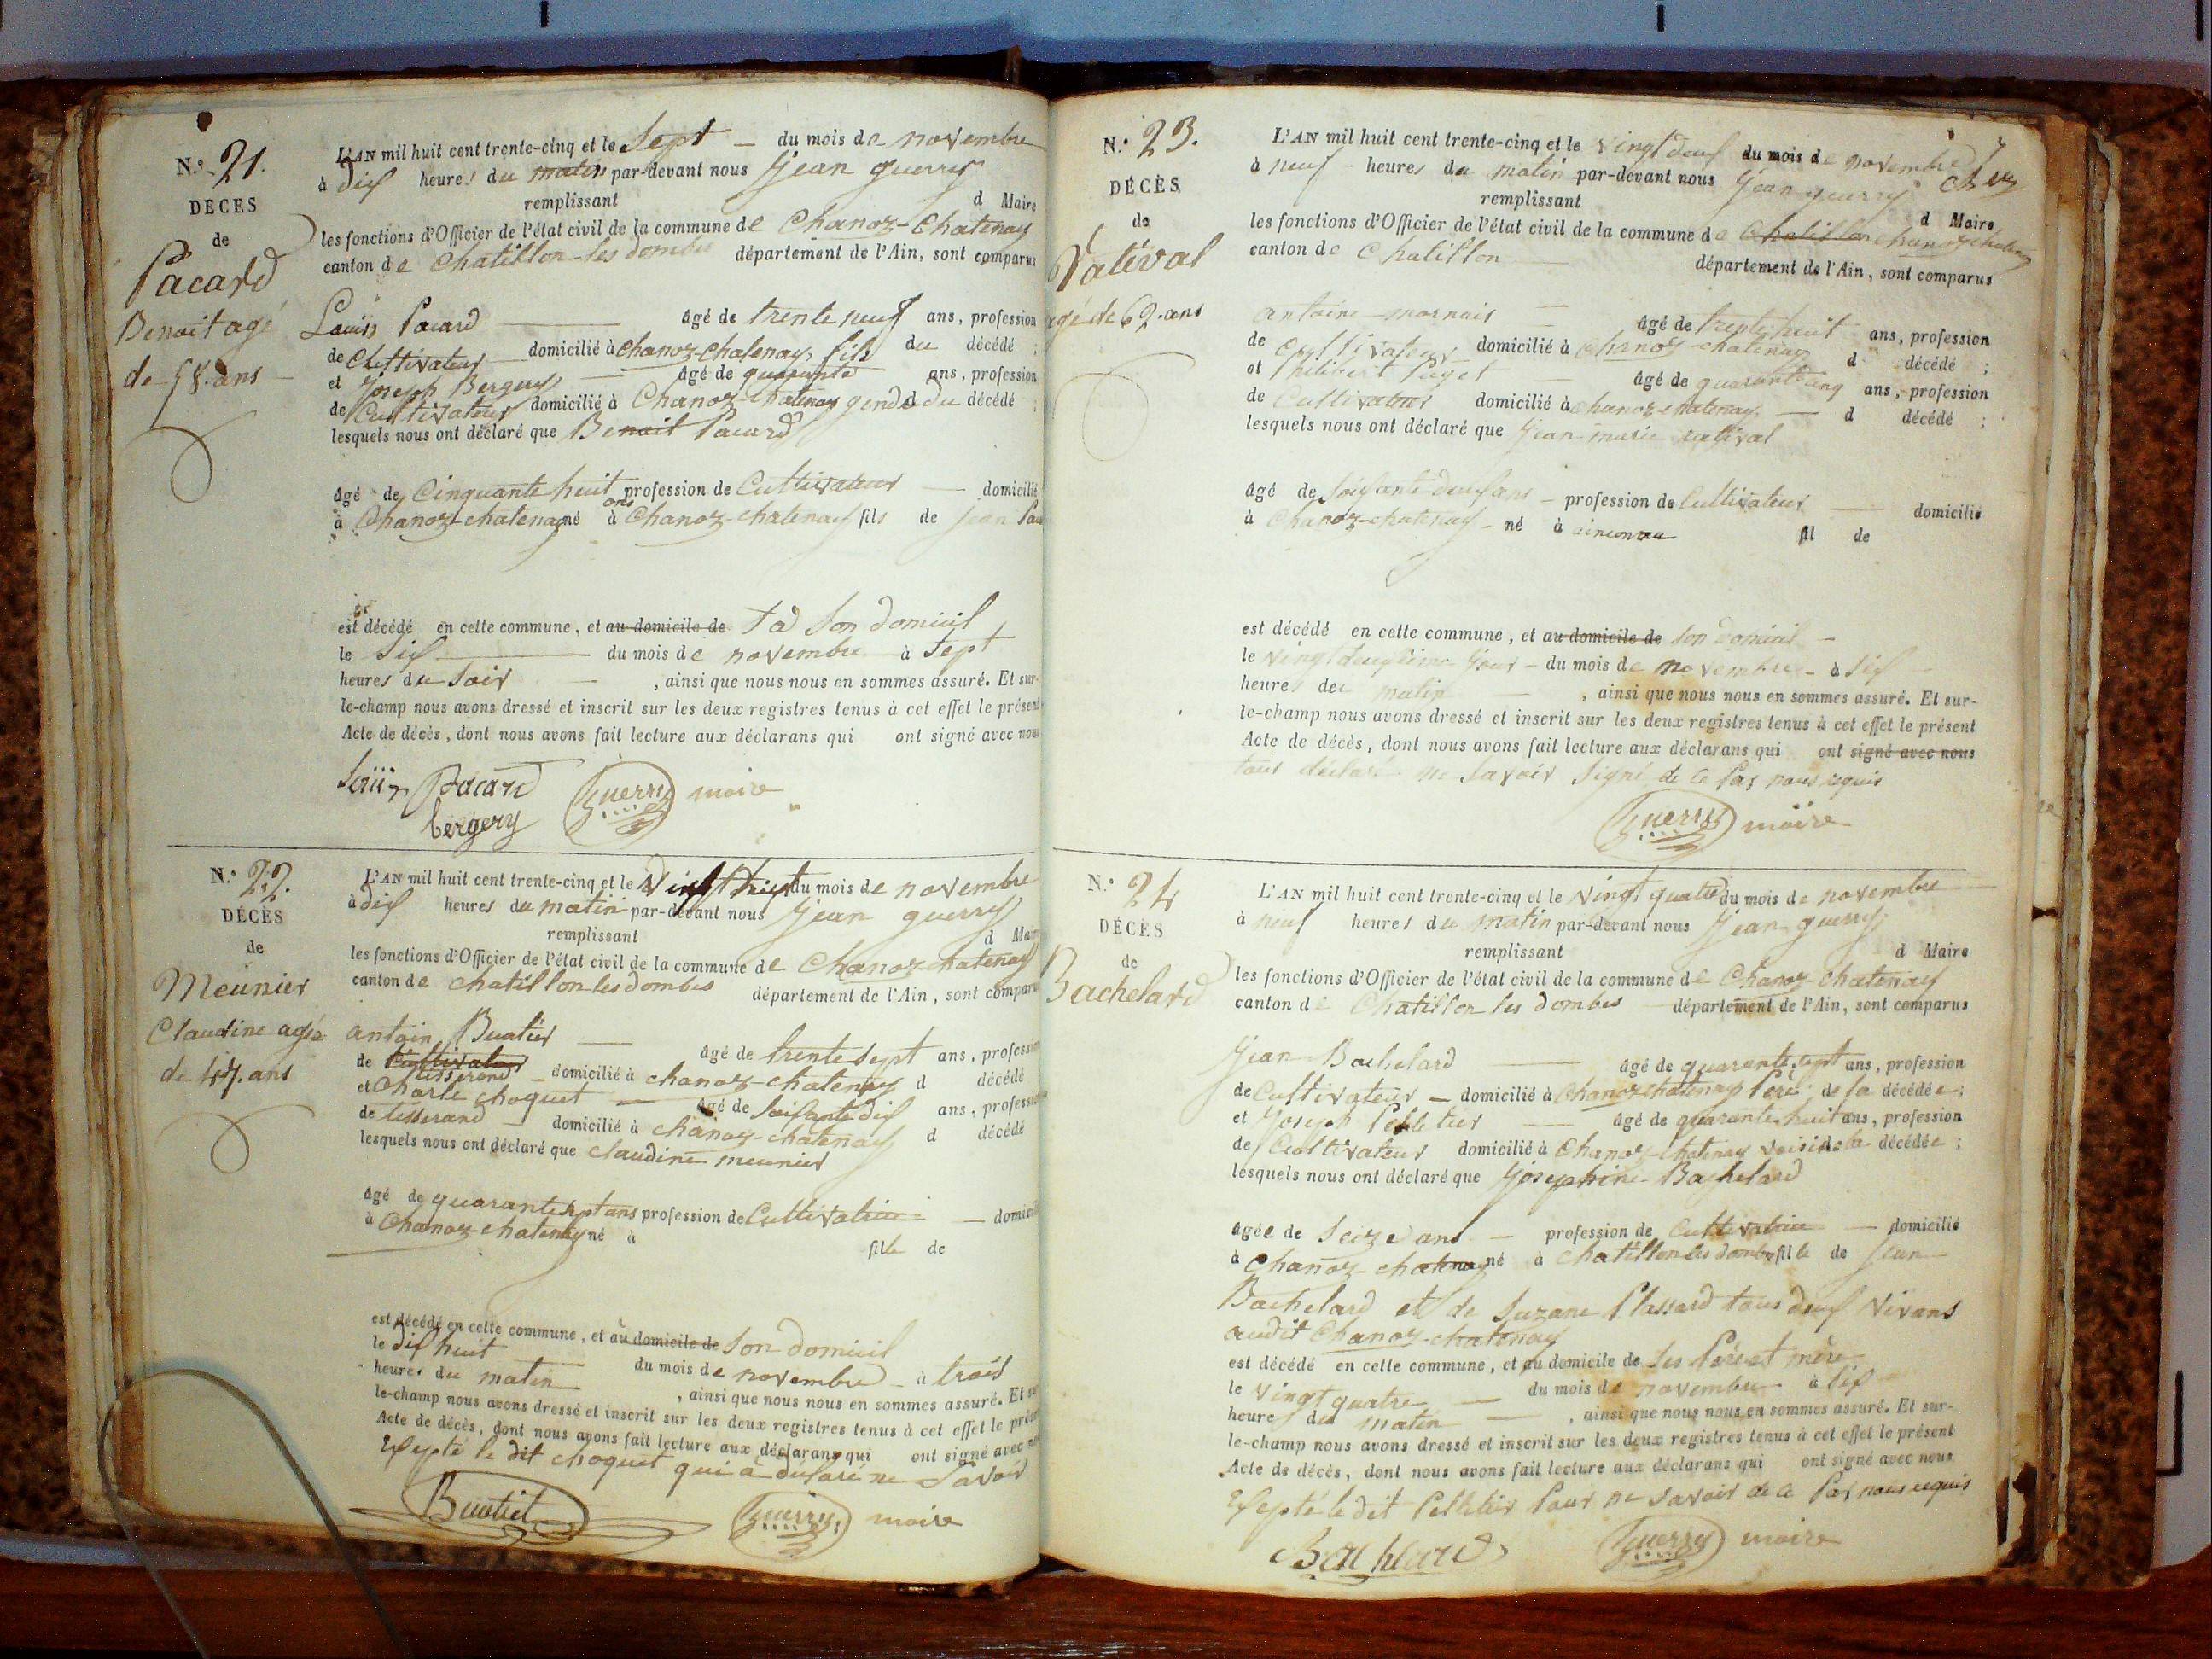 N.° 21.
DÉCÈS
de
Pacard
Benoit agé
de 58. ans
L'AN mil huit cent trente-cinq et le Sept du mois de novembre
à dix heures du matin par-devant nous jean guerry
remplissant d Maire
les fonctions d'Officier de l'état civil de la commune de Chanoz-Chatenay
canton de Chatillon-les dombes département de l'Ain, sont comparus
Louis Pacard âgé de trente neuf ans, profession
de Cultivateur domicilié à chanoz-chatenay, fils du décédé ;
et Joseph Bergery âgé de quarante ans, profession
de Cultivateur domicilié à Chanoz-chatenay gendre du décédé ;
lesquels nous ont déclaré que Benoit Pacard
âgé de Cinquante huit ans profession de Cultivateur domicilié
à Chanoz-chatenay né à Chanoz-chatenay fils de jean
est décédé en cette commune, et au domicile de à Son domicil
le Six du mois de novembre à Sept
heures du Soir , ainsi que nous nous en sommes assuré. Et sur-
le-champ nous avons dressé et inscrit sur les deux registres tenus à cet effet le présent
Acte de décès, dont nous avons fait lecture aux déclarans qui ont signé avec nous
Pacard Guerry maire
bergery
N.° 22.
DÉCÈS
de
Meunier
Claudine agée
de 47. ans
L'AN mil huit cent trente-cinq et le du mois de novembre
à dix heures du matin par-devant nous jean guerry
remplissant d Maire
les fonctions d'Officier de l'état civil de la commune de Chanoz chatenay
canton de chatillon les dombes département de l'Ain, sont comparus
antoin Buatier âgé de trente sept ans, profession
de Cultivateur tisserand domicilié à chanoz-chatenay d décédé
et Charle choquet âgé de Soixante dix ans, profession
de tisserand domicilié à chanoz-chatenay d décédé
lesquels nous ont déclaré que claudine meunier
âgé de quarante sept ans profession de Cultivatrice domicilié
à Chanoz chatenay né à fille de
est décédé en cette commune, et au domicile de Son domicil
le dix huit du mois de novembre à trois
heures du matin , ainsi que nous nous en sommes assuré. Et sur-
le-champ nous avons dressé et inscrit sur les deux registres tenus à cet effet le présent
Acte de décès, dont nous avons fait lecture aux déclarans qui ont signé avec nous
Exepté le dit choquet qui à déclaré ne Savoir
Buatier Guerry maire
N.° 23.
DÉCÈS
de
Ratival
agé de 62. ans
L'AN mil huit cent trente-cinq et le vingt deux du mois de novembre
à neuf heures du matin par-devant nous jean guerry
remplissant d Maire
les fonctions d'Officier de l'état civil de la commune de Chatillon chanoz chatenay
canton de Chatillon département de l'Ain, sont comparus
antoine mornais âgé de trente huit ans, profession
de Cultivateur domicilié à Chanoz chatenay d décédé ;
et Philibert Puget âgé de quarante cinq ans, profession
de Cultivateur domicilié à chanoz-chatenay d décédé ;
lesquels nous ont déclaré que jean-marie ratival
âgé de Soixante deux ans profession de Cultivateur domicilié
à Chanoz-chatenay né à fil de
est décédé en cette commune, et au domicile de Son domicil
le vingt deuxième jour du mois de novembre à Six
heures du matin , ainsi que nous nous en sommes assuré. Et sur-
le-champ nous avons dressé et inscrit sur les deux registres tenus à cet effet le présent
Acte de décès, dont nous avons fait lecture aux déclarans qui ont signé avec nous
tous déclaré ne Savoir Signé de Ce Par nous requis
Guerry maire
N.° 24
DÉCÈS
de
Bachelard
L'AN mil huit cent trente-cinq et le vingt quatre du mois de novembre
à neuf heures du matin par-devant nous jean guerry
remplissant d Maire
les fonctions d'Officier de l'état civil de la commune de Chanoz-chatenay
canton de Chatillon les dombes département de l'Ain, sont comparus
jean Bachelard âgé de quarante sept ans, profession
de Cultivateur domicilié à Chanoz chatenay Père de la décédée ;
et joseph Pelletier âgé de quarante huit ans, profession
de Cultivateur domicilié à Chanoz-chatenay voisin de la décédée ;
lesquels nous ont déclaré que josephine Bachelard
âgée de Seize ans profession de Cultivatrice domicilié
à Chanoz-chatenay né à chatillon les dombes fille de jean
Bachelard et de Suzane Plassard tous deux vivans
audit Chanoz-chatenay
est décédé en cette commune, et au domicile de Ses Père et mère
le vingt quatre du mois de novembre à Six
heures du matin , ainsi que nous nous en sommes assuré. Et sur-
le-champ nous avons dressé et inscrit sur les deux registres tenus à cet effet le présent
Acte de décès, dont nous avons fait lecture aux déclarans qui ont signé avec nous
Exepté le dit Pelletier Pour ne Savoir de ce Par nous requis
Bachelard Guerry maire